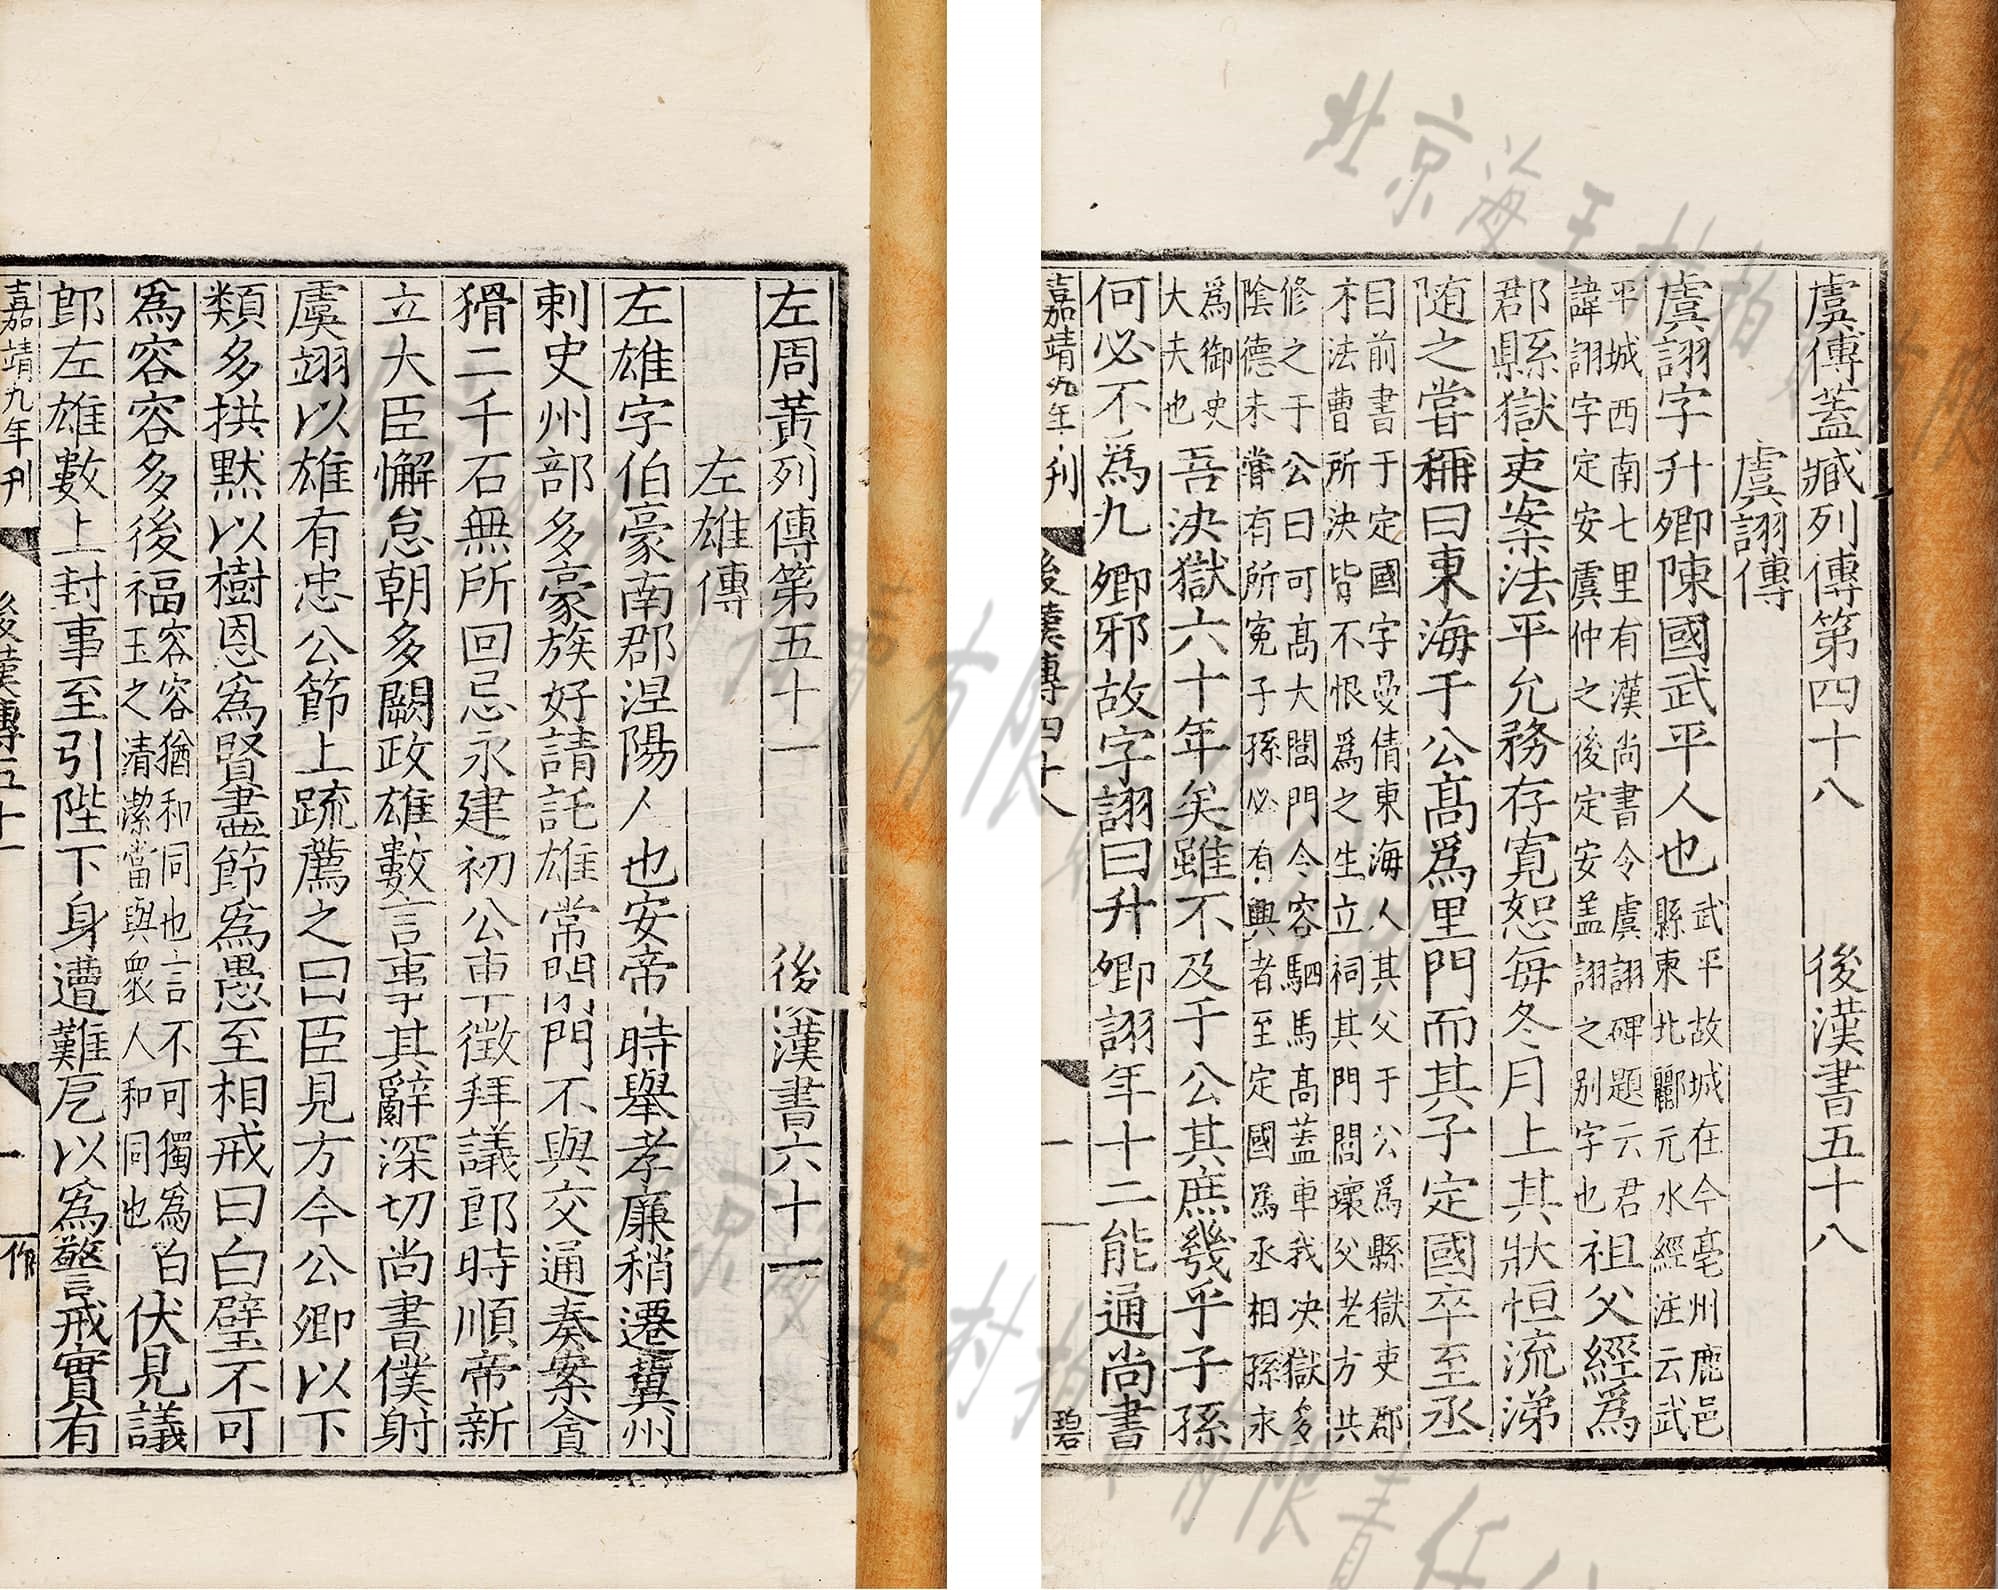 虞傅蓋臧列傳第四十八 後漢書五十八
虞詡傳
虞詡字升卿陳國武平人也
武平故城在今亳州鹿邑
縣東北酈元水經注云武
平城西南七里有漢尚書令虞詡碑題云君
諱詡字定安虞仲之後定安蓋詡之别字也
祖父經爲
郡縣獄吏案法平允務存寛恕每冬月上其狀恒流涕
随之嘗稱曰東海于公髙爲里門而其子定國卒至丞
曰前書于定國字曼倩東海人其父于公爲縣獄吏郡
才法曹所決皆不恨爲之生立祠其門閭壞父老方共
修之于公曰可髙大閭門令容駟馬髙蓋車我決獄多
隂德未甞有所寃子孫必有興者至定國爲丞相孫永
爲御史
大夫也
吾決獄六十年矣雖不及于公其庶幾乎子孫
何必不爲九卿邪故字詡曰升卿詡年十二能通尚書
嘉靖九年刊 後漢傳四十八 一 碧
左周黃列傳第五十一 後漢書六十一
左雄傳
左雄字伯豪南郡涅陽人也安帝時舉孝廉稍遷冀州
刺史州部多豪族好請託雄常閉門不與交通奏案貪
猾二千石無所回忌永建初公車徵拜議郎時順帝新
立大臣懈怠朝多闕政雄數言事其辭深切尚書僕射
虞翊以雄有忠公節上疏薦之曰臣見方今公卿以下
類多拱默以樹恩爲賢盡節爲愚至相戒曰白璧不可
爲容容多後福
容容猶和同也言不可獨爲白
玉之清潔當與衆人和同也
伏見議
郎左雄數上封事至引陛下身遭難厄以爲警戒實有
嘉靖九年刊 後漢傳五十一 一 作
北京海王村拍賣有限責任公司